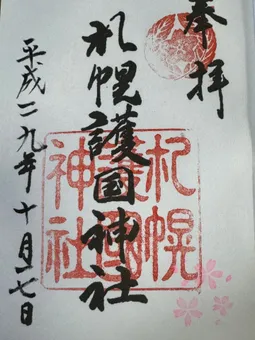 奉拝
札幌護国神社
平成二九年十月十七日
札幌
護國
神社